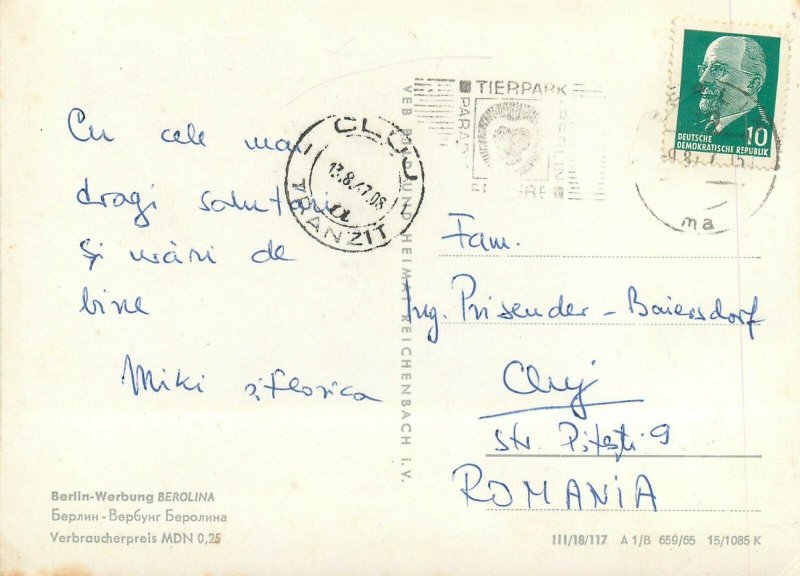 Cu cele mai
dragi salutări
Și urări de
bine
Miki și Florica
Berlin-Werbung BEROLINA
Берлин - Вербунг Беролина
Verbraucherpreis MDN 0,25
VEB BILD UND HEIMAT REICHENBACH i. V.
CLUJ
13.8.67.08
TRANZIT
TIERPARK
BERLIN
DEUTSCHE
DEMOKRATISCHE REPUBLIK
10
ma
Fam.
Ing. Prisender - Baiersdorf
Cluj
str. Pitești 9
ROMANIA
III/18/117 A 1/B 659/65 15/1085 K